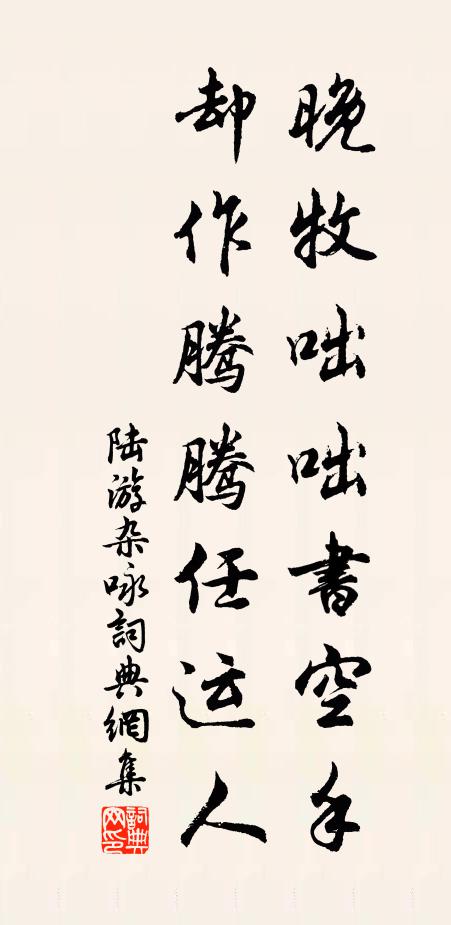 晚牧咄咄書空手
却作騰騰任运人
陆游杂咏詞典網集
詞典
网印